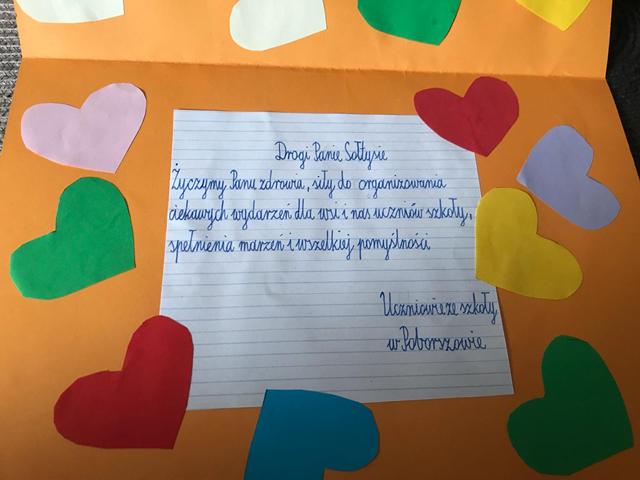 Drogi Panie Sołtysie
Życzymy Panu zdrowia, siły do organizowania
ciekawych wydarzeń dla wsi i nas uczniów szkoły,
spełnienia marzeń i wszelkiej pomyślności
Uczniowie ze szkoły
w Poborszowie